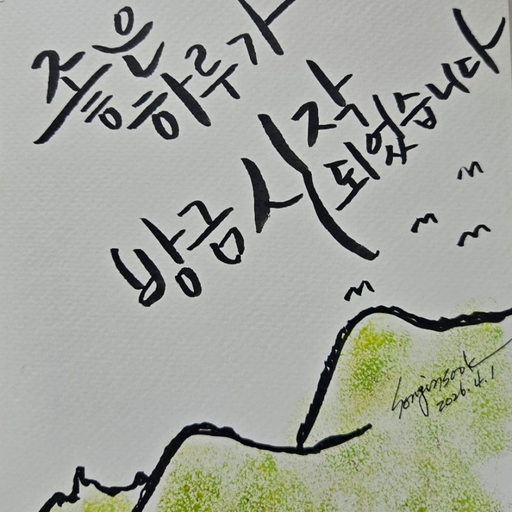 좋은
하루가
방금 시작
되었습니다
Songinsook
2026.4.1